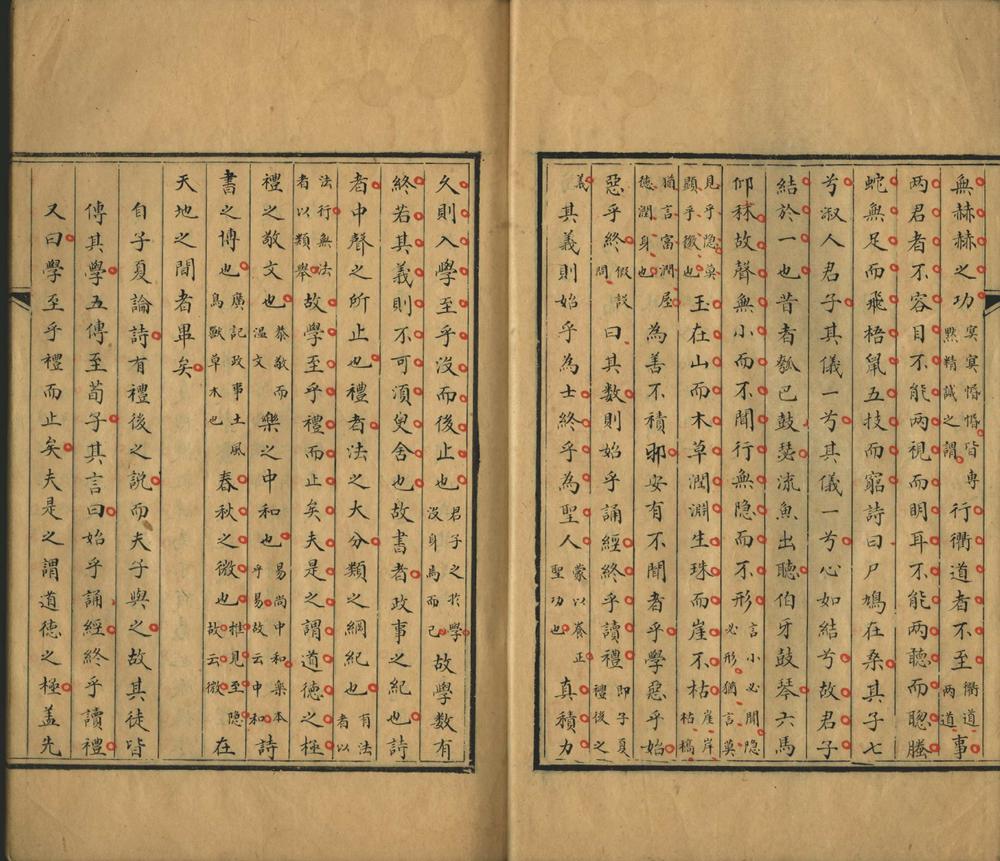 無赫赫之功冥冥惛惛皆專默精誠之謂行衢道者不至衢道兩道事
两君者不容目不能两視而明耳不能两聽而聰螣
蛇無足而飛梧鼠五技而窮詩曰尸鳩在桑其子七
兮淑人君子其儀一兮其儀一兮心如結兮故君子
結於一也昔者瓠巴鼓瑟流魚出聽伯牙鼓琴六馬
仰秣故聲無小而不聞行無隐而不形言小必聞隐必形猶言莫
見乎隐莫顯乎微也玉在山而木草潤淵生珠而崖不枯崖岸枯槁
猶言富潤屋德潤身也為善不積邪安有不聞者乎學惡乎始
惡乎終假設問曰其数則始乎誦經終乎讀禮即子夏禮後之
義其義則始乎為士終乎為聖人蒙以养正聖功也真積力
久則入學至乎沒而後止也君子之於學沒身焉而已故學数有
終若其義則不可須臾舍也故書者政事之紀也詩
者中聲之所止也禮者法之大分類之綱紀也有法者以
法行無法者以類舉故學至乎禮而止矣夫是之謂道德之極
禮之敬文也恭敬而温文樂之中和也易尚中和樂本乎易故云中和詩
書之博也廣記政事土風鳥獸草木也春秋之微也推見至隐故云微在
天地之間者畢矣
自子夏論詩有禮後之説而夫子與之故其徒皆
傳其學五傳至荀子其言曰始乎誦經終乎讀禮
又曰學至乎禮而止矣夫是之謂道德之極盖先